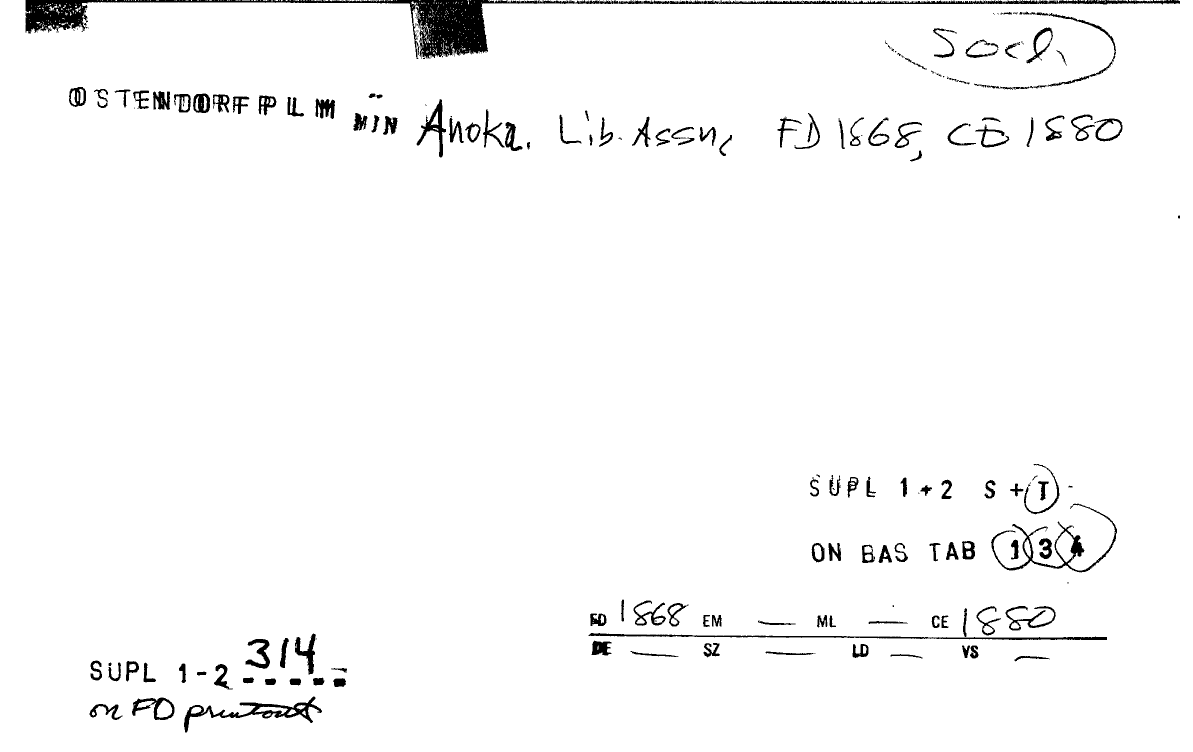 Socl.
OSTENDORFPLM MIN Anoka. Lib. Assn, FD 1868, CE 1880
SUPL 1+2 S+T
ON BAS TAB 1 3 4
FD 1868 EM — ML — CE 1880
DE — SZ — LD — VS —
SUPL 1-2 314
on FD printout